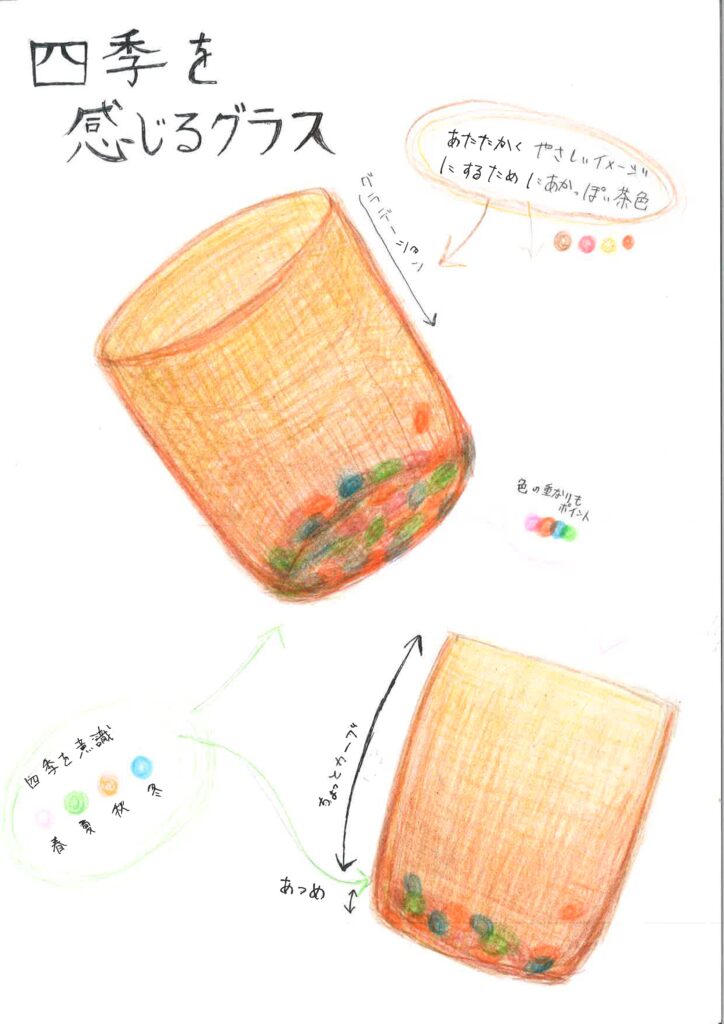 四季を
感じるグラス
あたたかく やさしいイメージ
にするためにあかっぽい茶色
グラデーション
色の重なりも
ポイント
ちょっとカーブ
四季を意識
春 夏 秋 冬
あつめ